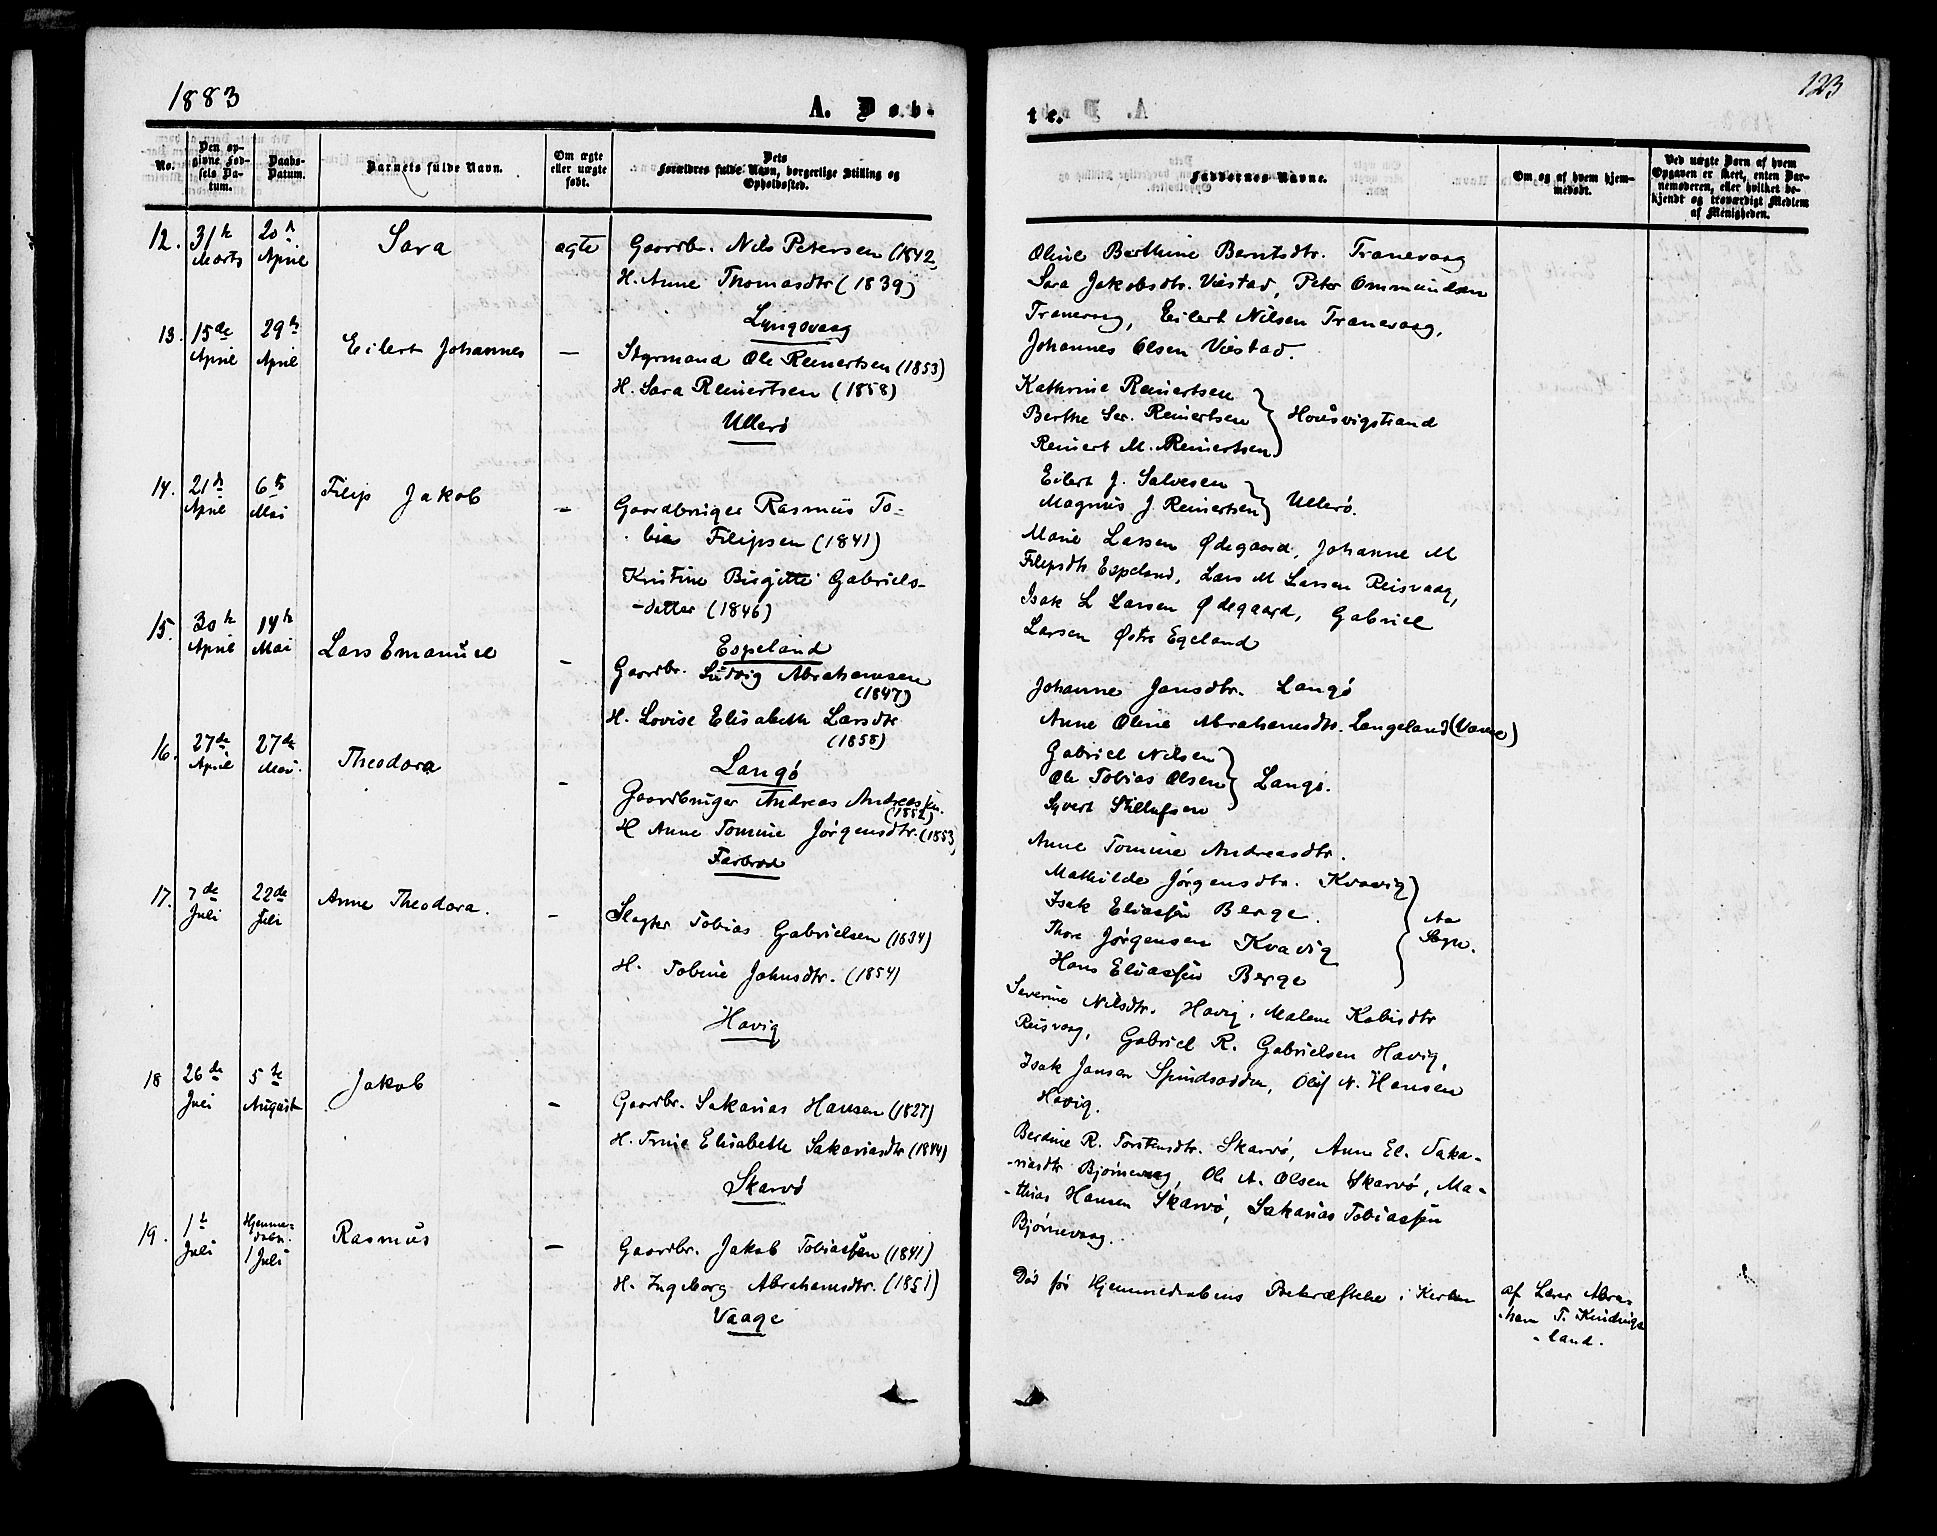 1883
A. Døb-
No.
Den op-
givne Fød-
sels Da-
tum.
Daabs-
Datum.
Barnets fulde Navn.
Om ægte
eller uægte
født.
Dets
Forældres fulde Navn, borgerlige Stilling og
Opholdssted.
12. 31te Marts 20de April Sara ægte Gaardbr. Nils Petersen (1842,
H. Anne Thomasdtr (1839)
Lyngsvaag
13. 15de April 29de April Eilert Johannes — Styrmand Ole Reinertsen (1853)
H. Sara Reinertsen (1858)
Ullerø
14. 21de April 6te Mai Filip Jakob — Gaardbruger Rasmus To-
bias Filipsen (1841)
Kristine Birgitte Gabriels-
-datter (1846)
Espeland
15. 30te April 14de Mai Lars Emanuel — Gaardbr. Ludvig Abrahamsen
(1847)
H. Lovise Elisabeth Larsdtr
(1858)
Langø
16. 27de April 27de Mai. Theodora — Gaardbruger Andreas Andreassen.
(1852)
H Anne Tomine Jørgensdtr. (1853,
Farbrod
17. 7de Juli 22de Juli Anne Theodora. — Slagter Tobias Gabrielsen (1834)
H. Tobine Johnsdtr. (1854)
Havig
18 26de Juli 5te August Jakob — Gaardbr. Sakarias Hansen (1827)
H. Trine Elisabeth Sakariasdtr (1844)
Skarvø
19. 1te Juli Hjemme-
døbt. 1 Juli Rasmus — Gaardbr. Jakob Tobiassen (1841)
H. Ingeborg Abrahamsdtr. (1851)
Vaage
123
te.
Faddernes Navne.
Om og af hvem hjem-
medøbt.
Ved uægte Børn af hvem
Opgaven er skeet, enten Bar-
nemoderen, eller hvilket be-
kjendt og troværdigt Medlem
af Menigheden.
Oline Berthine Berntsdtr. Tranevaag
Sara Jakobsdtr. Viestad, Peter Ommundsen
Tranevaag, Eilert Nilsen Tranevaag,
Johannes Olsen Viestad.
Kathrine Reinertsen
Berthe Ser. Reinertsen Housvigstrand
Reinert M. Reinertsen
Eilert J. Salvesen
Magnus J. Reinertsen Ullerø.
Marie Larsen Ødegaard, Johanne M
Filipsdtr Espeland, Lars M Larsen Reisvaag,
Isak L Larsen Ødegaard, Gabriel
Larsen Østre Egeland
Johanne Jansdtr. Langø
Anne Oline Abrahamsdtr. Langeland
Gabriel Nilsen
Ole Tobias Olsen Langø.
Syvert Stillufsen
Anne Tomine Andreasdtr.
Mathilde Jørgensdtr. Kvavig
Isak Eliassen Berge. Aa
Thore Jørgensen Kvavig Sogn.
Hans Eliassen Berge
Severine Nilsdtr. Havig, Malene Kabisdtr
Reisvaag, Gabriel R. Gabrielsen Havig,
Isak Jansen Spindsodden, Oluf N. Hansen
Havig.
Berdine R. Torstensdtr. Skarvø, Anne El. Saka-
-riasdtr Bjørnevaag, Ole A. Olsen Skarvø, Ma-
-thias Hansen Skarvø, Sakarias Tobiassen
Bjørnevaag.
Død før Hjemmedaabens Bekræftelse i Kirken
af Lærer Abra-
-ham T. Kindings-
-land.